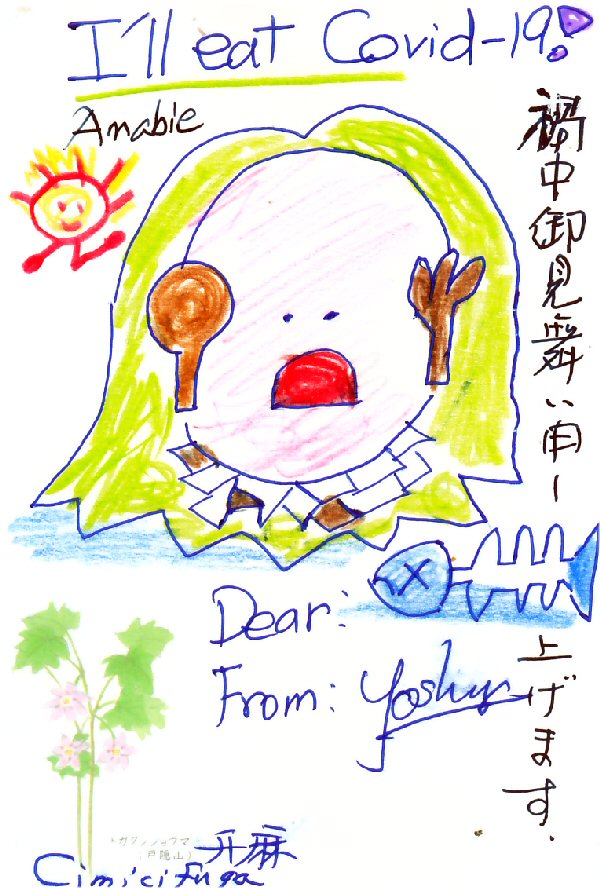 I'll eat Covid-19!
Amabie
禍中御見舞い申し上げます.
Dear:
From: Yoshiyu
トガクシショウマ
(戸隠山)
升麻
Cimicifuga